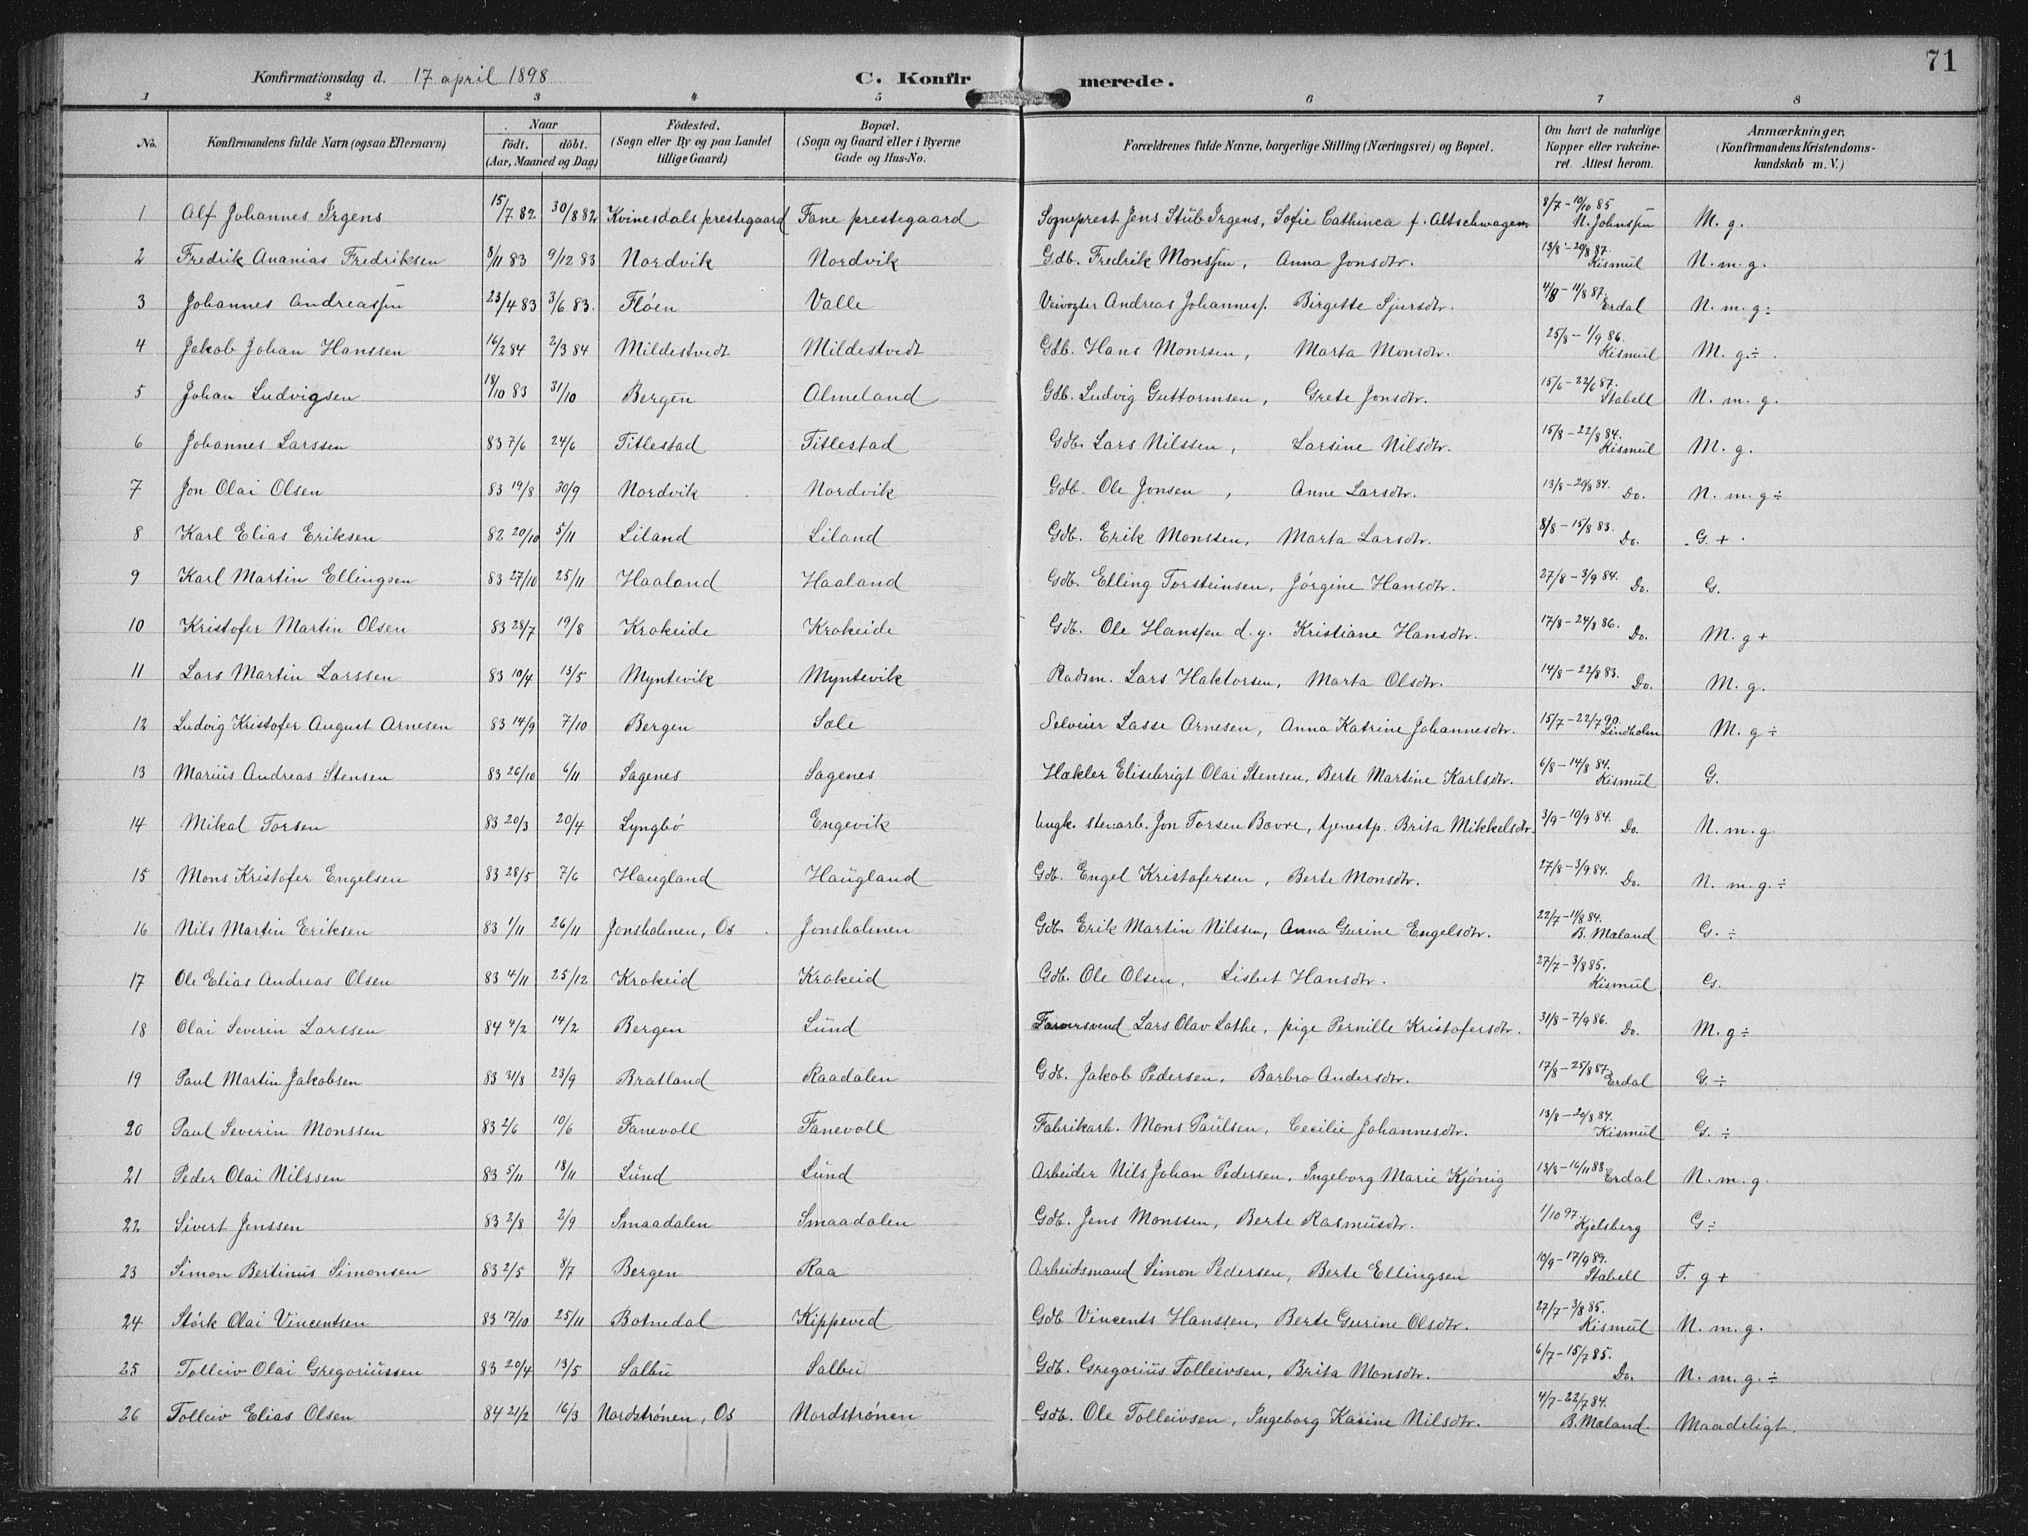 71
Konfirmationsdag d. 17 april 1898 C. Konfir merede.
1 2 3 4 5 6 7 8
No. Konfirmandens fulde Navn (ogsaa Efternavn) Naar født. døbt. (Aar, Maaned og Dag) Fødested. (Sogn eller By og paa Landet tillige Gaard) Bopæl. (Sogn og Gaard eller i Byerne Gade og Hus-No. Forældrenes fulde Navne, borgerlige Stilling (Næringsvei) og Bopæl. Om havt de naturlige Kopper eller vakcineret. Attest herom. Anmærkninger, (Konfirmandens Kristendomskundskab m. V.)
1 Alf Johannes Irgens 15/7 82 30/8 82 Kvinesdals prestegaard Fane prestegaard Sogneprest Jens Stub Irgens, Sofie Cathinca f. Altschwager 8/7 - 10/10 85 N. Johnsen M. g.
2 Fredrik Ananias Fredriksen 8/11 83 9/12 83 Nordvik Nordvik Gdb. Fredrik Monssen, Anna Jonsdtr. 13/8 - 20/8 87. Kismul N. m. g.
3 Johannes Andreassen 23/4 83 3/6 83. Fløen Valle Veivogter Andreas Johanness. Birgette Sjursdtr. 4/8 - 11/8 87. Erdal N. m. g ÷
4 Jakob Johan Hanssen 16/2 84 2/3 84 Mildestvedt Mildestvedt Gdb. Hans Monssen, Marta Monsdtr. 25/8 - 1/9 86. Kismul M. g. ÷
5 Johan Ludvigsen 18/10 83 31/10 Bergen Almeland Gdb. Ludvig Guttormsen, Grete Jonsdtr. 15/6 - 22/6 87. Stabell N. m. g.
6 Johannes Larssen 83 7/6 24/6 Titlestad Titlestad Gdb. Lars Nilssen, Larsine Nilsdtr. 15/8 - 22/8 84. Kismul M. g.
7 Jon Olai Olsen 83 19/8 30/9 Nordvik Nordvik Gdb. Ole Jonsen, Anne Larsdtr. 13/8 - 20/8 84. Do. N. m. g ÷
8 Karl Elias Eriksen 82 20/10 5/11 Liland Liland Gdb. Erik Monssen, Marta Larsdtr. 8/8 - 15/8 83. Do. G. +
9 Karl Martin Ellingsen 83 27/10 25/11 Haaland Haaland Gdb. Elling Torsteinsen, Jørgine Hansdtr. 27/8 - 3/9 84. Do. G.
10 Kristofer Martin Olsen 83 28/7 19/8 Krokeide Krokeide Gdb. Ole Hanssen d. y. Kristiane Hansdtr. 17/8 - 24/8 86. Do. M. g +
11 Lars Martin Larssen 83 10/4 13/5 Myntevik Myntevik Radsm. Lars Haktorsen, Marta Olsdtr. 14/8 - 22/8 83. Do. M. g.
12 Ludvig Kristofer August Arnesen 83 14/9 7/10 Bergen Sæle Selveier Lasse Arnesen, Anna Katrine Johannesdtr. 15/7 - 22/7 90. Lindholm M. g ÷
13 Marius Andreas Stensen 83 26/10 6/11 Sagenes Sagenes Hækler Elisebrigt Olai Stensen, Berte Martine Karlsdtr. 6/8 - 14/8 84. Kismul G.
14 Mikal Torsen 83 20/3 20/4 Lyngbø Engevik Ungk. stenarb. Jon Torsen Bovre, tjenestp. Brita Mikkelsdtr. 3/9 - 10/9 84. Do. N. m. g
15 Mons Kristofer Engelsen 83 28/5 7/6 Haugland Haugland Gdb. Engel Kristofersen, Berte Monsdtr. 27/8 - 3/9 84. Do. N. m. g. ÷
16 Nils Martin Eriksen 83 1/11 26/11 Jonsholmen, Os Jonsholmen Gdb. Erik Martin Nilssen, Anna Gurine Engelsdtr. 22/7 - 11/8 84. B. Mæland G. ÷
17 Ole Elias Andreas Olsen 83 4/11 25/12 Krokeid Krokeid Gdb. Ole Olsen, Lisbet Hansdtr. 27/7 - 3/8 85. Kismul G.
18 Olai Severin Larssen 84 4/2 14/2 Bergen Lund Farversvend Lars Olav Lothe, pige Pernille Kristofersdtr. 31/8 - 7/9 86. Do. M. g ÷
19 Paul Martin Jakobsen 83 31/8 23/9 Bratland Raadalen Gdb. Jakob Pedersen, Barbro Andersdtr. 17/8 - 25/8 87. Erdal G. ÷
20 Paul Severin Monssen 83 2/6 10/6 Fanevoll Fanevoll Fabrikarb. Mons Paulsen, Cecilie Johannesdtr. 13/8 - 20/8 84. Kismul G. ÷
21 Peder Olai Nilssen 83 5/11 18/11 Lund Lund Arbeider Nils Johan Pedersen, Ingeborg Marie Kjønig 13/8 - 16/11 88. Erdal N. m. g.
22 Sivert Jenssen 83 2/8 2/9 Smaadalen Smaadalen Gdb. Jens Monssen, Berte Rasmusdtr. 1/10 97. Kjelsberg G ÷
23 Simon Bertinus Simonsen 83 2/5 8/7 Bergen Raa Arbeidsmand Simon Pedersen, Berte Ellingsen 10/9 - 17/9 89. Stabell T. g +
24 Størk Olai Vincentsen 83 17/10 25/11 Botnedal Kippeved Gdb Vincents Hanssen, Berte Gurine Olsdtr. 27/7 - 3/8 85. Kismul N. m. g.
25 Tolleiv Olai Gregoriussen 83 20/4 13/5 Salbu Salbu Gdb. Gregorius Tolleivsen, Brita Monsdtr. 6/7 - 15/7 85. Do. N. m. g. ÷
26 Tolleiv Elias Olsen 84 21/2 16/3 Nordstrønen, Os Nordstrønen Gdb. Ole Tolleivsen, Ingeborg Karine Nilsdtr. 4/7 - 22/7 84. B. Mæland. Maadeligt.